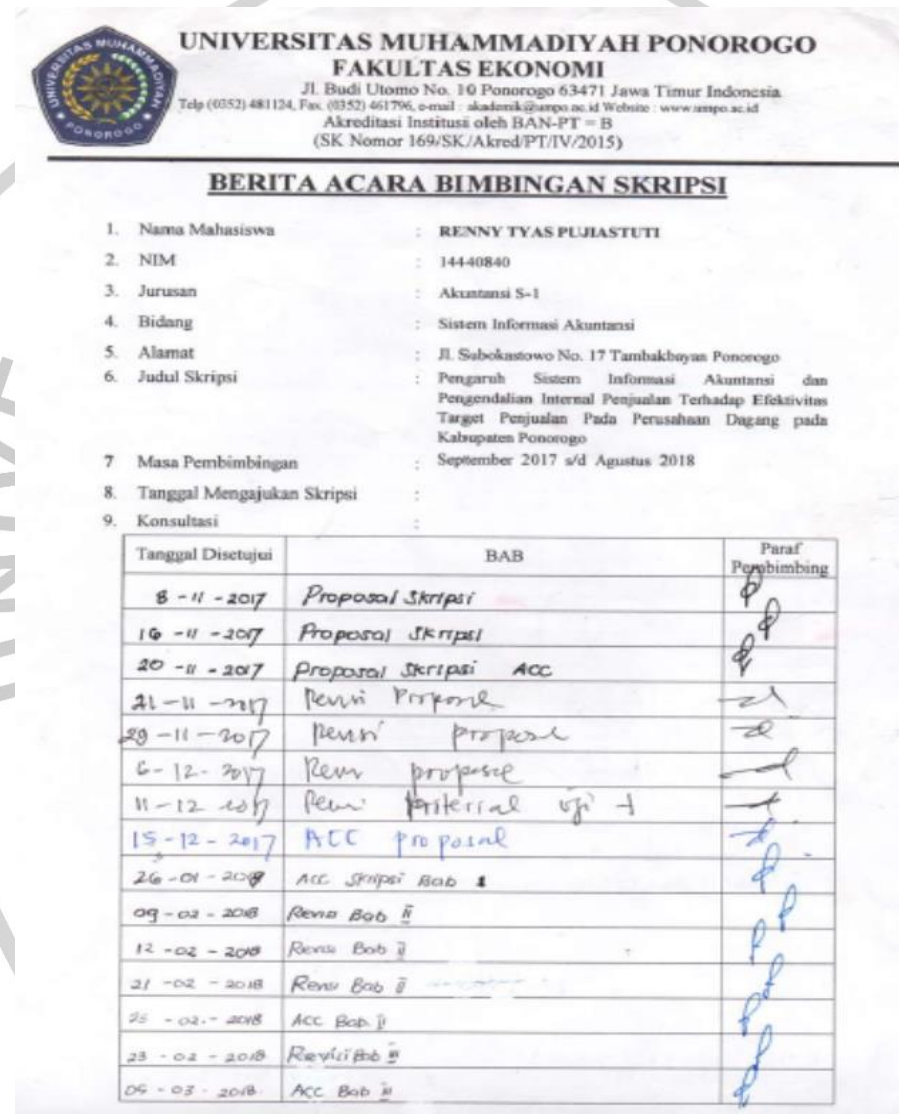 UNIVERSITAS MUHAMMADIYAH PONOROGO
FAKULTAS EKONOMI
Jl. Budi Utomo No. 10 Ponorogo 63471 Jawa Timur Indonesia
Telp (0352) 481124, Fax. (0352) 461796, e-mail : akademik@umpo.ac.id Website : www.umpo.ac.id
Akreditasi Institusi oleh BAN-PT = B
(SK Nomor 169/SK/Akred/PT/IV/2015)
BERITA ACARA BIMBINGAN SKRIPSI
1. Nama Mahasiswa : RENNY TYAS PUJIASTUTI
2. NIM : 14440840
3. Jurusan : Akuntansi S-1
4. Bidang : Sistem Informasi Akuntansi
5. Alamat : Jl. Subokastowo No. 17 Tambakbayan Ponorogo
6. Judul Skripsi : Pengaruh Sistem Informasi Akuntansi dan
Pengendalian Internal Penjualan Terhadap Efektivitas
Target Penjualan Pada Perusahaan Dagang pada
Kabupaten Ponorogo
7 Masa Pembimbingan : September 2017 s/d Agustus 2018
8. Tanggal Mengajukan Skripsi :
9. Konsultasi :
Tanggal Disetujui BAB Paraf Pembimbing
8 - 11 - 2017 Proposal Skripsi
16 - 11 - 2017 Proposal Skripsi
20 - 11 - 2017 Proposal Skripsi ACC
21 - 11 - 2017 Revisi Propose
29 - 11 - 2017 Revisi propose
6 - 12 - 2017 propose
11 - 12 2017 uji
15 - 12 - 2017 ACC proposal
26 - 01 - 2018 ACC Skripsi Bab 1
09 - 02 - 2018 Revisi Bab II
12 - 02 - 2018 Revisi Bab II
21 - 02 - 2018 Revisi Bab II
25 - 02 - 2018 ACC Bab II
23 - 02 - 2018 Revisi Bab III
05 - 03 - 2018. ACC Bab III